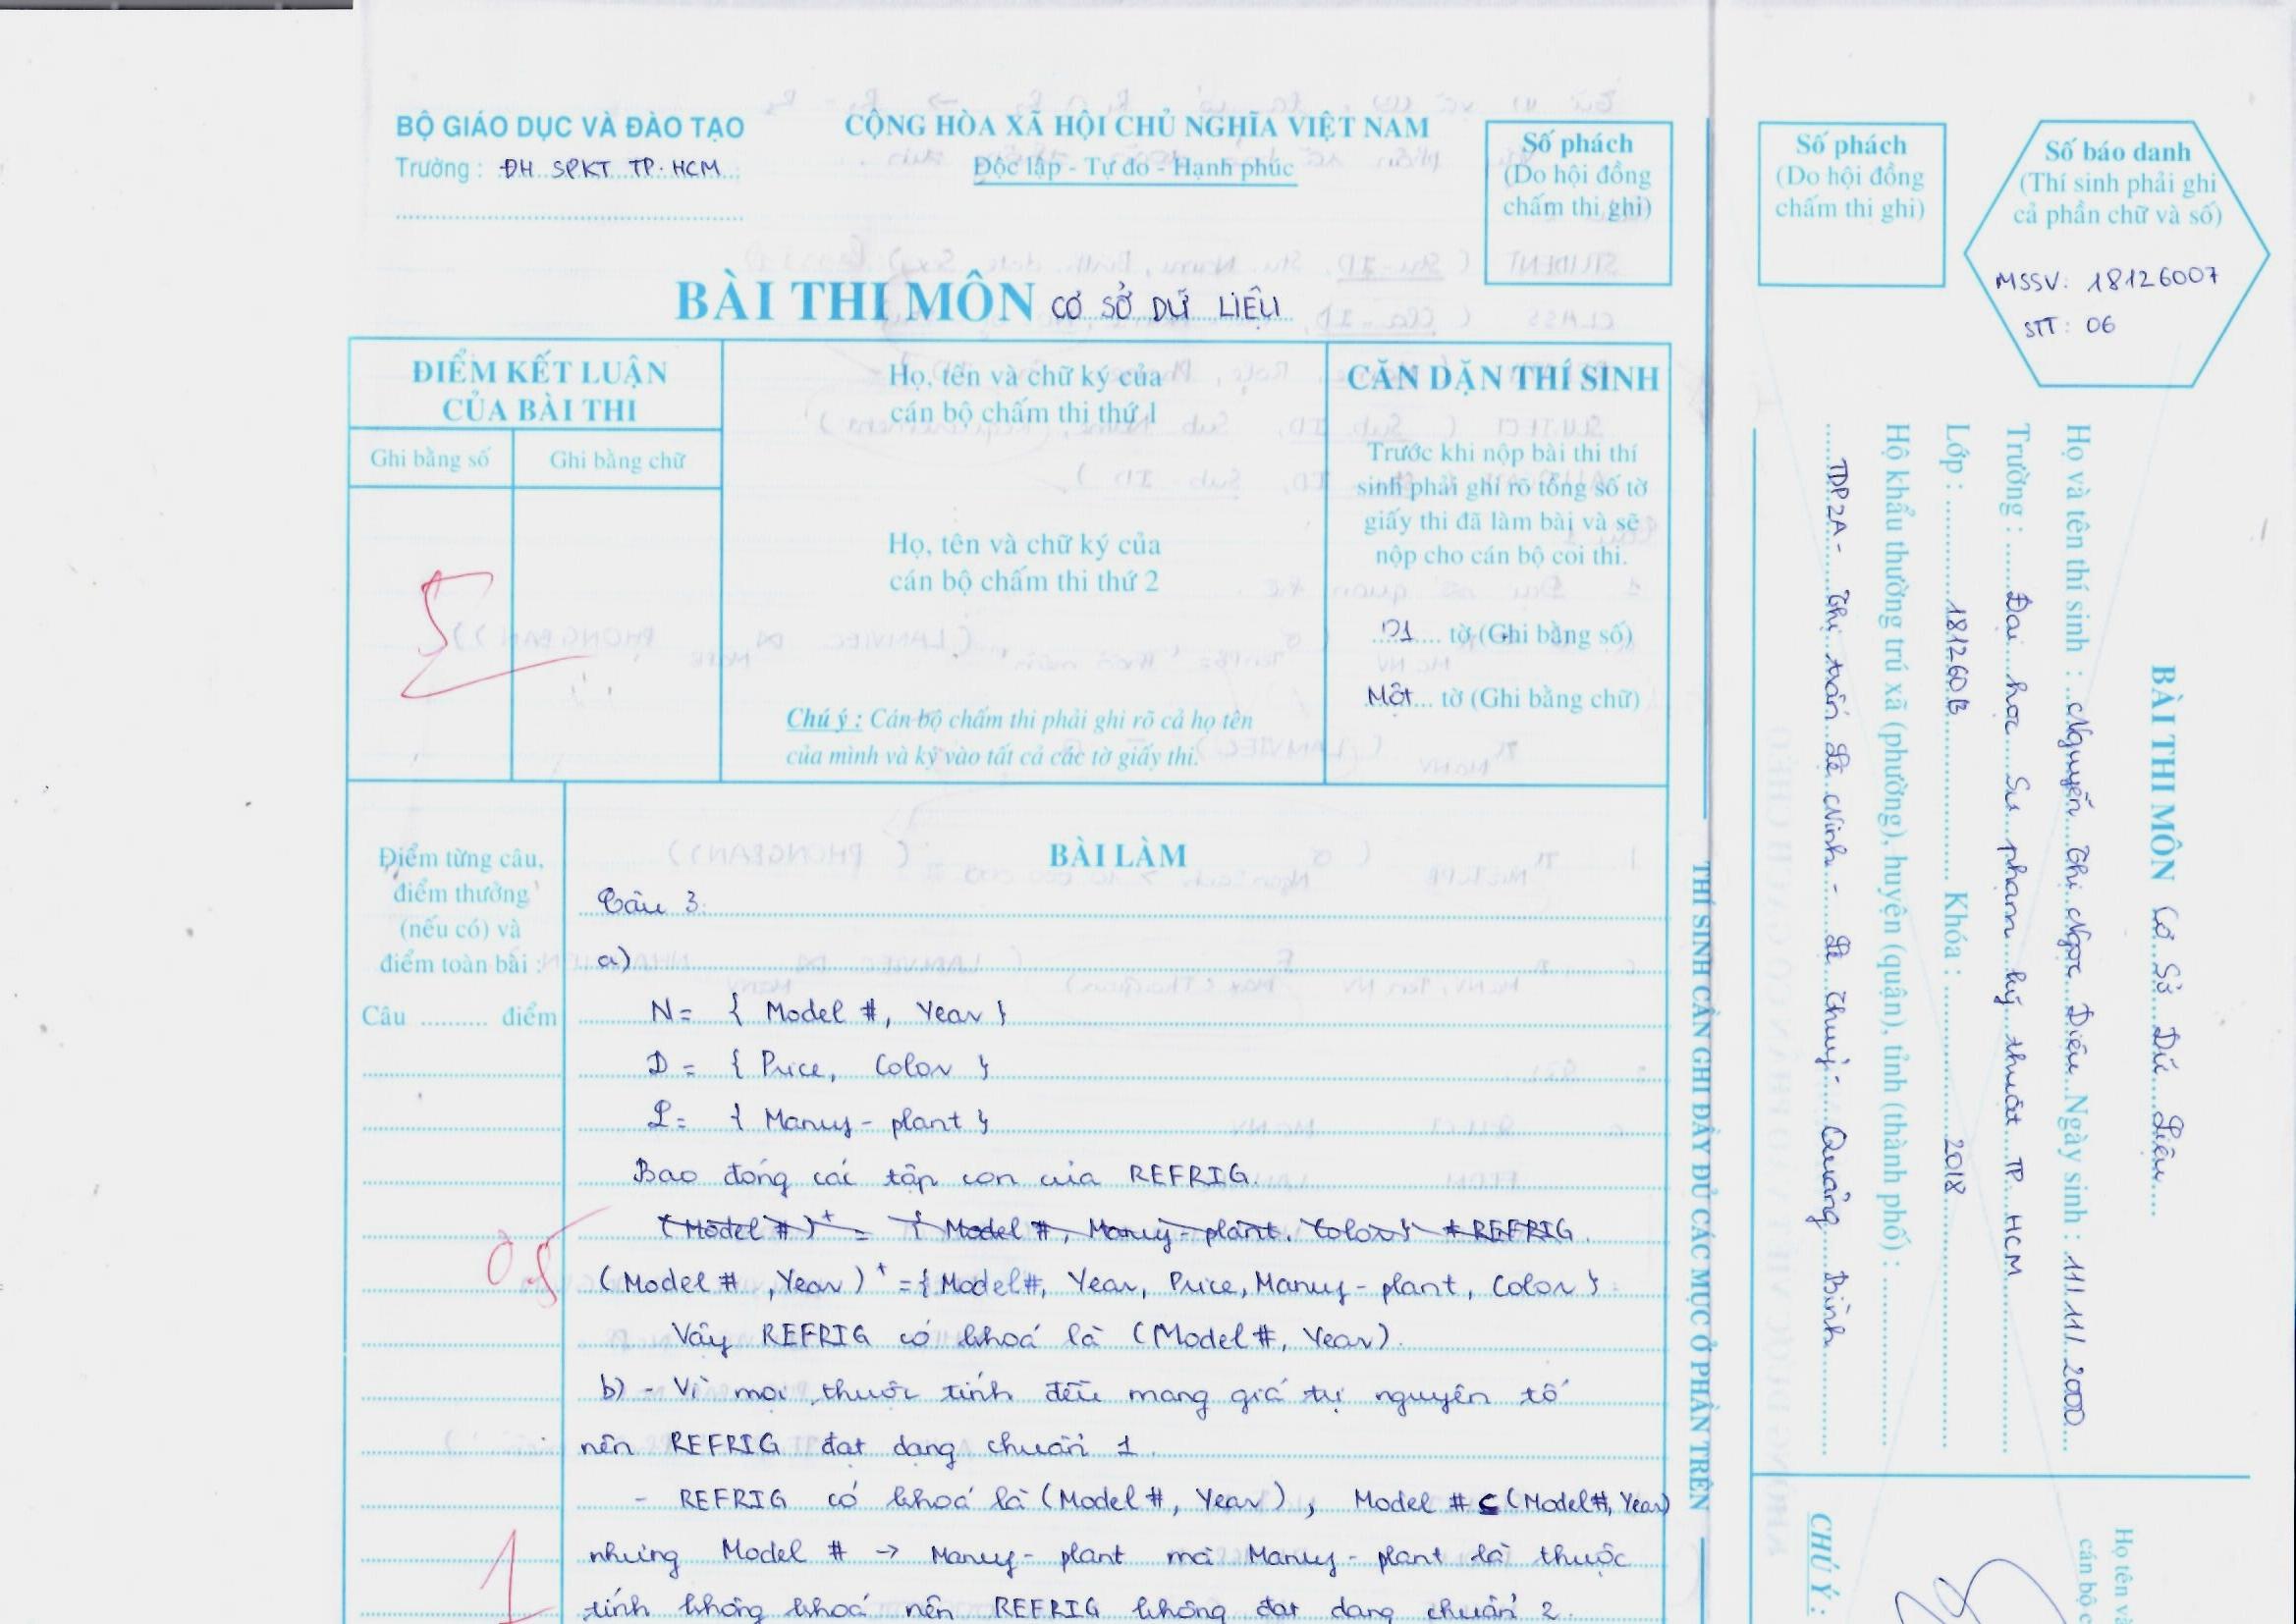 BỘ GIÁO DỤC VÀ ĐÀO TẠO
Trường : ĐH SPKT TP. HCM
CỘNG HÒA XÃ HỘI CHỦ NGHĨA VIỆT NAM
Độc lập - Tự do - Hạnh phúc
Số phách
(Do hội đồng
chấm thi ghi)
BÀI THI MÔN CƠ SỞ DỮ LIỆU
ĐIỂM KẾT LUẬN
CỦA BÀI THI
Ghi bằng số
Ghi bằng chữ
5
Họ, tên và chữ ký của
cán bộ chấm thi thứ 1
Họ, tên và chữ ký của
cán bộ chấm thi thứ 2
Chú ý : Cán bộ chấm thi phải ghi rõ cả họ tên
của mình và ký vào tất cả các tờ giấy thi.
CĂN DẶN THÍ SINH
Trước khi nộp bài thi thí
sinh phải ghi rõ tổng số tờ
giấy thi đã làm bài và sẽ
nộp cho cán bộ coi thi.
01 tờ (Ghi bằng số)
Một tờ (Ghi bằng chữ)
Điểm từng câu,
điểm thưởng
(nếu có) và
điểm toàn bài :
Câu .......... điểm
0,5
1
BÀI LÀM
Câu 3:
a)
N = { Model #, Year }
D = { Price, Color }
L = { Manuf - plant }
Bao đóng các tập con của REFRIG.
(Model #)+ = { Model #, Manuf - plant, Color } ≠ REFRIG.
(Model #, Year)+ = { Model #, Year, Price, Manuf - plant, Color }
Vậy REFRIG có khoá là (Model #, Year).
b) - Vì mọi thuộc tính đều mang giá trị nguyên tố
nên REFRIG đạt dạng chuẩn 1.
- REFRIG có khoá là (Model #, Year), Model # ⊂ (Model #, Year)
nhưng Model # → Manuf - plant mà Manuf - plant là thuộc
tính không khoá nên REFRIG không đạt dạng chuẩn 2.
THÍ SINH CẦN GHI ĐẦY ĐỦ CÁC MỤC Ở PHẦN TRÊN
Số phách
(Do hội đồng
chấm thi ghi)
Số báo danh
(Thí sinh phải ghi
cả phần chữ và số)
MSSV: 18126007
STT : 06
BÀI THI MÔN Cơ Sở Dữ Liệu
Họ và tên thí sinh : Nguyễn Thị Ngọc Diệu Ngày sinh : 11/11/2000
Trường : Đại học Sư phạm kỹ thuật TP HCM
Lớp : 18126OB Khóa : 2018
Hộ khẩu thường trú xã (phường), huyện (quận), tỉnh (thành phố) :
TDP2A - Thị trấn Lệ Ninh - Lệ Thuỷ - Quảng Bình
CHÚ Ý :
Họ tên và
cán bộ c